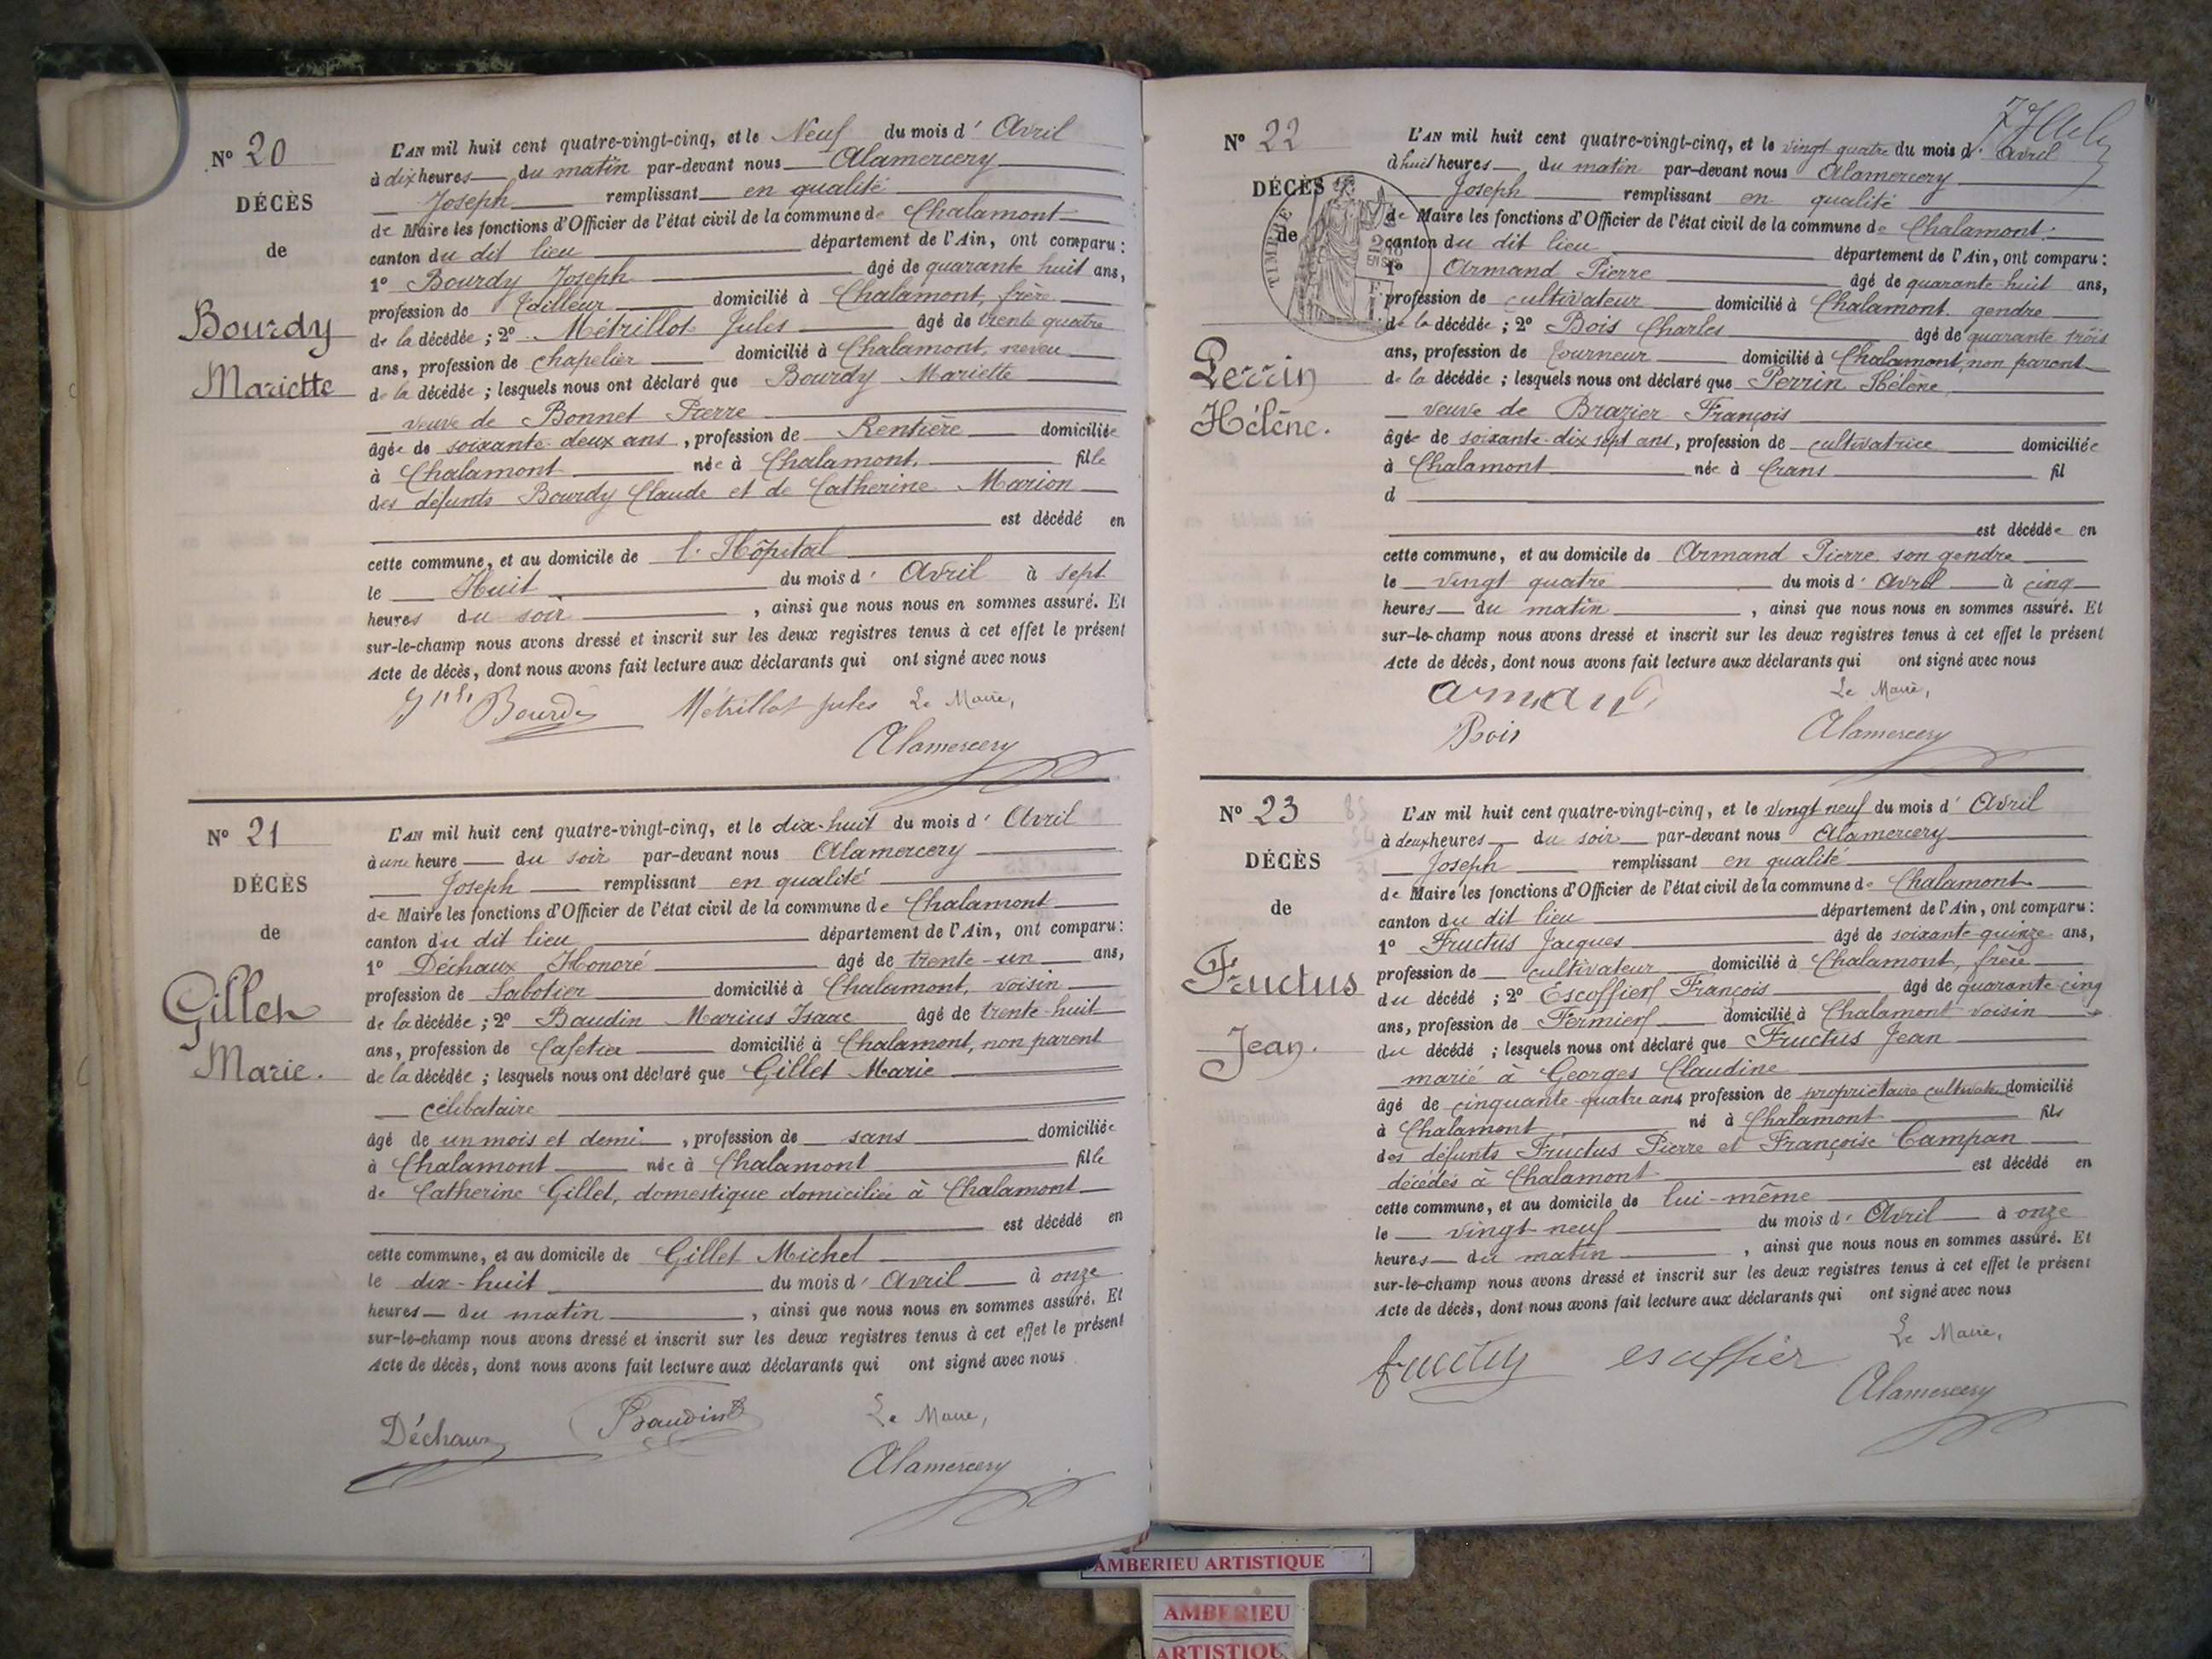 N° 20
DÉCÈS
de
Bourdy
Mariette
L'AN mil huit cent quatre-vingt-cinq, et le Neuf du mois d' Avril
à dix heures du matin par-devant nous Alamercery
Joseph remplissant en qualité
de Maire les fonctions d'Officier de l'état civil de la commune de Chalamont
canton du dit lieu département de l'Ain, ont comparu :
1° Bourdy Joseph âgé de quarante huit ans,
profession de Tailleur domicilié à Chalamont, frère
de la décédée ; 2° Métrillot Jules âgé de trente quatre
ans, profession de chapelier domicilié à Chalamont, neveu
de la décédée ; lesquels nous ont déclaré que Bourdy Mariette
veuve de Bonnet Pierre
âgée de soixante-deux ans, profession de Rentière domiciliée
à Chalamont née à Chalamont, fille
des défunts Bourdy Claude et de Catherine Marion
est décédé en
cette commune, et au domicile de l'Hôpital
le Huit du mois d' Avril à sept
heures du soir, ainsi que nous nous en sommes assuré. Et
sur-le-champ nous avons dressé et inscrit sur les deux registres tenus à cet effet le présent
Acte de décès, dont nous avons fait lecture aux déclarants qui ont signé avec nous
Bourdy Métrillot Jules Le Maire,
Alamercery
N° 21
DÉCÈS
de
Gillet
Marie.
L'AN mil huit cent quatre-vingt-cinq, et le dix-huit du mois d' Avril
à une heure du soir par-devant nous Alamercery
Joseph remplissant en qualité
de Maire les fonctions d'Officier de l'état civil de la commune de Chalamont
canton du dit lieu département de l'Ain, ont comparu :
1° Déchaux Honoré âgé de trente-un ans,
profession de Sabotier domicilié à Chalamont, voisin
de la décédée ; 2° Baudin Marius Isaac âgé de trente-huit
ans, profession de Cafetier domicilié à Chalamont, non parent
de la décédée ; lesquels nous ont déclaré que Gillet Marie
célibataire
âgé de un mois et demi, profession de sans domiciliée
à Chalamont née à Chalamont fille
de Catherine Gillet, domestique domiciliée à Chalamont
est décédé en
cette commune, et au domicile de Gillet Michel
le dix-huit du mois d' Avril à onze
heures du matin, ainsi que nous nous en sommes assuré. Et
sur-le-champ nous avons dressé et inscrit sur les deux registres tenus à cet effet le présent
Acte de décès, dont nous avons fait lecture aux déclarants qui ont signé avec nous
Déchaux Baudin Le Maire,
Alamercery
N° 22
DÉCÈS
de
TIMBRE
Perrin
Hélène.
L'AN mil huit cent quatre-vingt-cinq, et le vingt quatre du mois d' Avril
à huit heures du matin par-devant nous Alamercery
Joseph remplissant en qualité
de Maire les fonctions d'Officier de l'état civil de la commune de Chalamont
canton du dit lieu département de l'Ain, ont comparu :
1° Armand Pierre âgé de quarante-huit ans,
profession de cultivateur domicilié à Chalamont, gendre
de la décédée ; 2° Bois Charles âgé de quarante trois
ans, profession de Tourneur domicilié à Chalamont, non parent
de la décédée ; lesquels nous ont déclaré que Perrin Hélène
veuve de Brazier François
âgée de soixante-dix sept ans, profession de cultivatrice domiciliée
à Chalamont née à Crans fil
d
est décédée en
cette commune, et au domicile de Armand Pierre son gendre
le vingt quatre du mois d' Avril à cinq
heures du matin, ainsi que nous nous en sommes assuré. Et
sur-le-champ nous avons dressé et inscrit sur les deux registres tenus à cet effet le présent
Acte de décès, dont nous avons fait lecture aux déclarants qui ont signé avec nous
armand Le Maire,
Bois Alamercery
N° 23
DÉCÈS
de
Fructus
Jean.
L'AN mil huit cent quatre-vingt-cinq, et le vingt neuf du mois d' Avril
à deux heures du soir par-devant nous Alamercery
Joseph remplissant en qualité
de Maire les fonctions d'Officier de l'état civil de la commune de Chalamont
canton du dit lieu département de l'Ain, ont comparu :
1° Fructus Jacques âgé de soixante-quinze ans,
profession de cultivateur domicilié à Chalamont, frère
du décédé ; 2° Escoffier François âgé de quarante-cinq
ans, profession de Fermier domicilié à Chalamont voisin
du décédé ; lesquels nous ont déclaré que Fructus Jean
marié à Georges Claudine
âgé de cinquante-quatre ans profession de propriétaire cultivateur domicilié
à Chalamont né à Chalamont fils
des défunts Fructus Pierre et Françoise Campan
décédés à Chalamont est décédé en
cette commune, et au domicile de lui-même
le vingt-neuf du mois d' Avril à onze
heures du matin, ainsi que nous nous en sommes assuré. Et
sur-le-champ nous avons dressé et inscrit sur les deux registres tenus à cet effet le présent
Acte de décès, dont nous avons fait lecture aux déclarants qui ont signé avec nous
fructus escoffier Le Maire,
Alamercery
AMBERIEU ARTISTIQUE
AMBERIEU
ARTISTIQUE